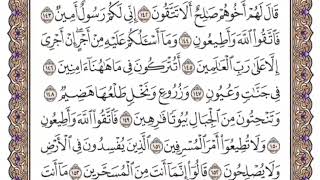 قَالَ لَهُمْ أَخُوهُمْ صَٰلِحٌ أَلَا تَتَّقُونَ ١٤٢ إِنِّى لَكُمْ رَسُولٌ أَمِينٌ ١٤٣
فَٱتَّقُوا۟ ٱللَّهَ وَأَطِيعُونِ ١٤٤ وَمَآ أَسْـَٔلُكُمْ عَلَيْهِ مِنْ أَجْرٍ إِنْ أَجْرِىَ
إِلَّا عَلَىٰ رَبِّ ٱلْعَٰلَمِينَ ١٤٥ أَتُتْرَكُونَ فِى مَا هَٰهُنَآ ءَامِنِينَ ١٤٦
فِى جَنَّٰتٍ وَعُيُونٍ ١٤٧ وَزُرُوعٍ وَنَخْلٍ طَلْعُهَا هَضِيمٌ ١٤٨
وَتَنْحِتُونَ مِنَ ٱلْجِبَالِ بُيُوتًا فَٰرِهِينَ ١٤٩ فَٱتَّقُوا۟ ٱللَّهَ وَأَطِيعُونِ
١٥٠ وَلَا تُطِيعُوٓا۟ أَمْرَ ٱلْمُسْرِفِينَ ١٥١ ٱلَّذِينَ يُفْسِدُونَ فِى ٱلْأَرْضِ
وَلَا يُصْلِحُونَ ١٥٢ قَالُوٓا۟ إِنَّمَآ أَنتَ مِنَ ٱلْمُسَحَّرِينَ ١٥٣ مَآ أَنتَ